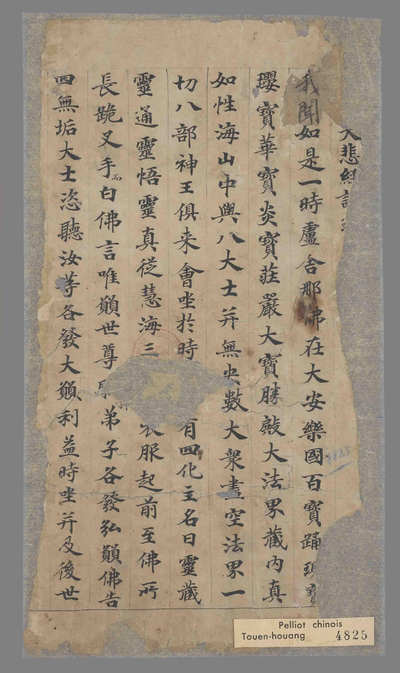 大悲經說
我聞如是一時盧舍那佛在大安樂國百寶踊
瓔寶華寶炎寶莊嚴大寶勝殿大法界藏內真
如性海山中與八大士并無央數大衆盡空法界一
切八部神王俱来會坐於時有四化主名曰靈藏
靈通靈悟靈真從慧海三衣服起前至佛所
長跪叉手而白佛言唯願世尊弟子各發弘願佛告
四無垢大士恣聽汝等各發大願利益時坐并及後世
Pelliot chinois
Touen-houang 4825